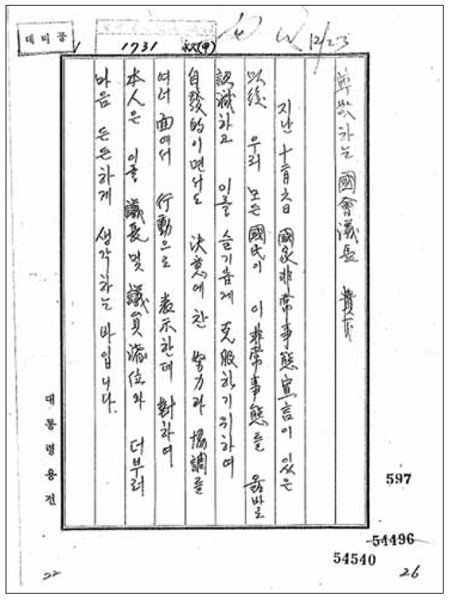 대비공
1731
12/23
尊敬하는 國會議長 貴下
지난 十二月 六日 國家非常事態宣言이 있은
以後 우리 모든 國民이 이 非常事態를 올바로
認識하고 이를 슬기롭게 克服하기 위하여
自發的이면서도 決意에 찬 努力과 協調를
여러 面에서 行動으로 表示한데 對하여
本人은 이를 議長 및 議員諸位와 더부러
마음 든든하게 생각하는 바입니다.
대통령용전
597
54496
54540
22
26